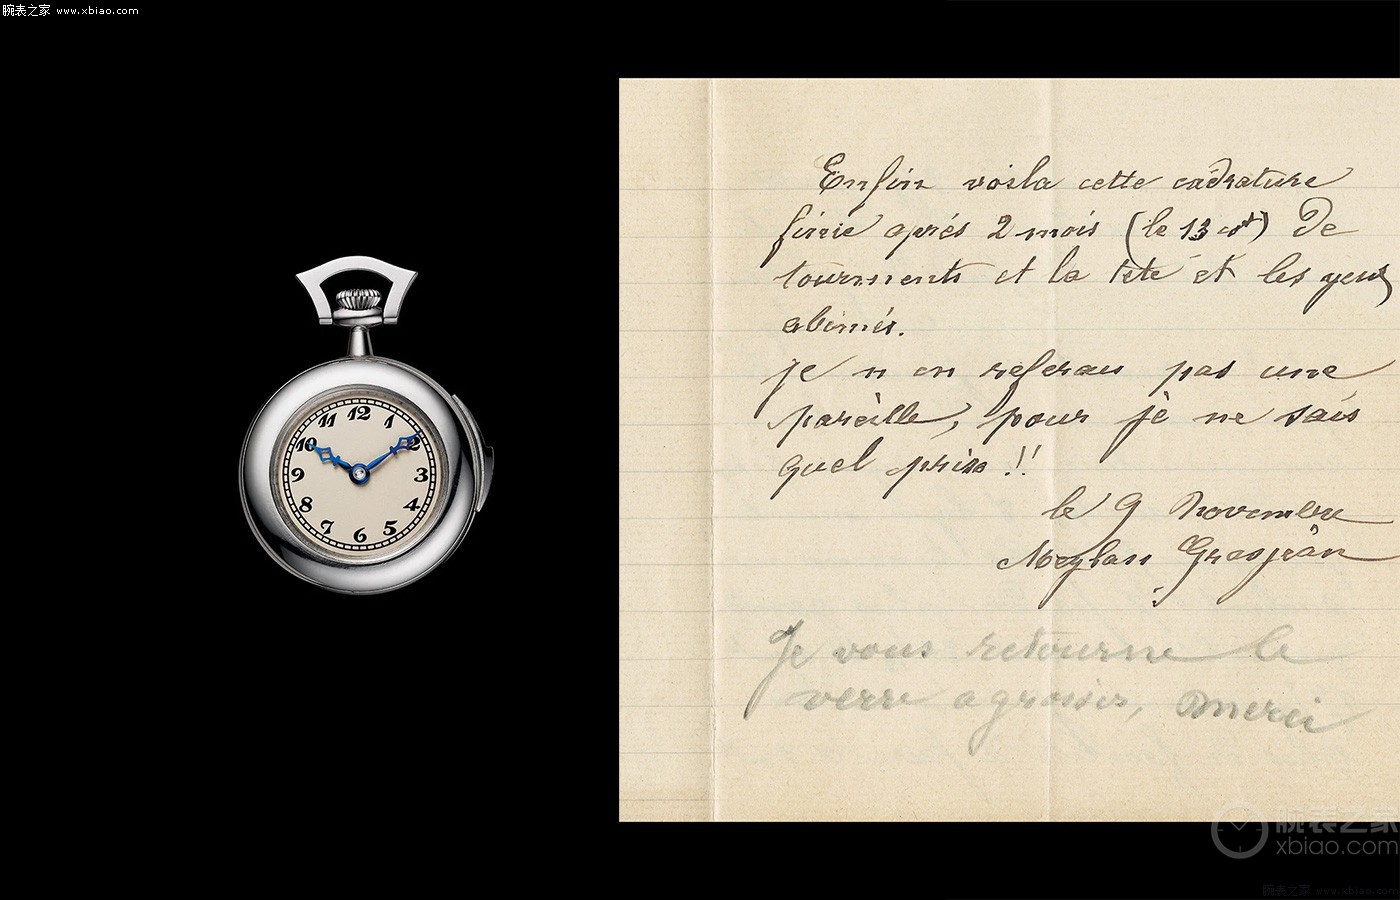 腕表之家 www.xbiao.com
12
11 1
10 2
9 3
8 4
7 5
6
Enfin voila cette cadrature
finie après 2 mois (le 13 ct) De
tourments et la tête et les yeux
abimés.
Je n en referais pas une
pareille, pour je ne sais
quel prix !!
le 9 Novembre
Meylan Grosjean
Je vous retourne le
verre a grossir, merci
腕表之家
xbiao.com
腕表之家 www.xbiao.com